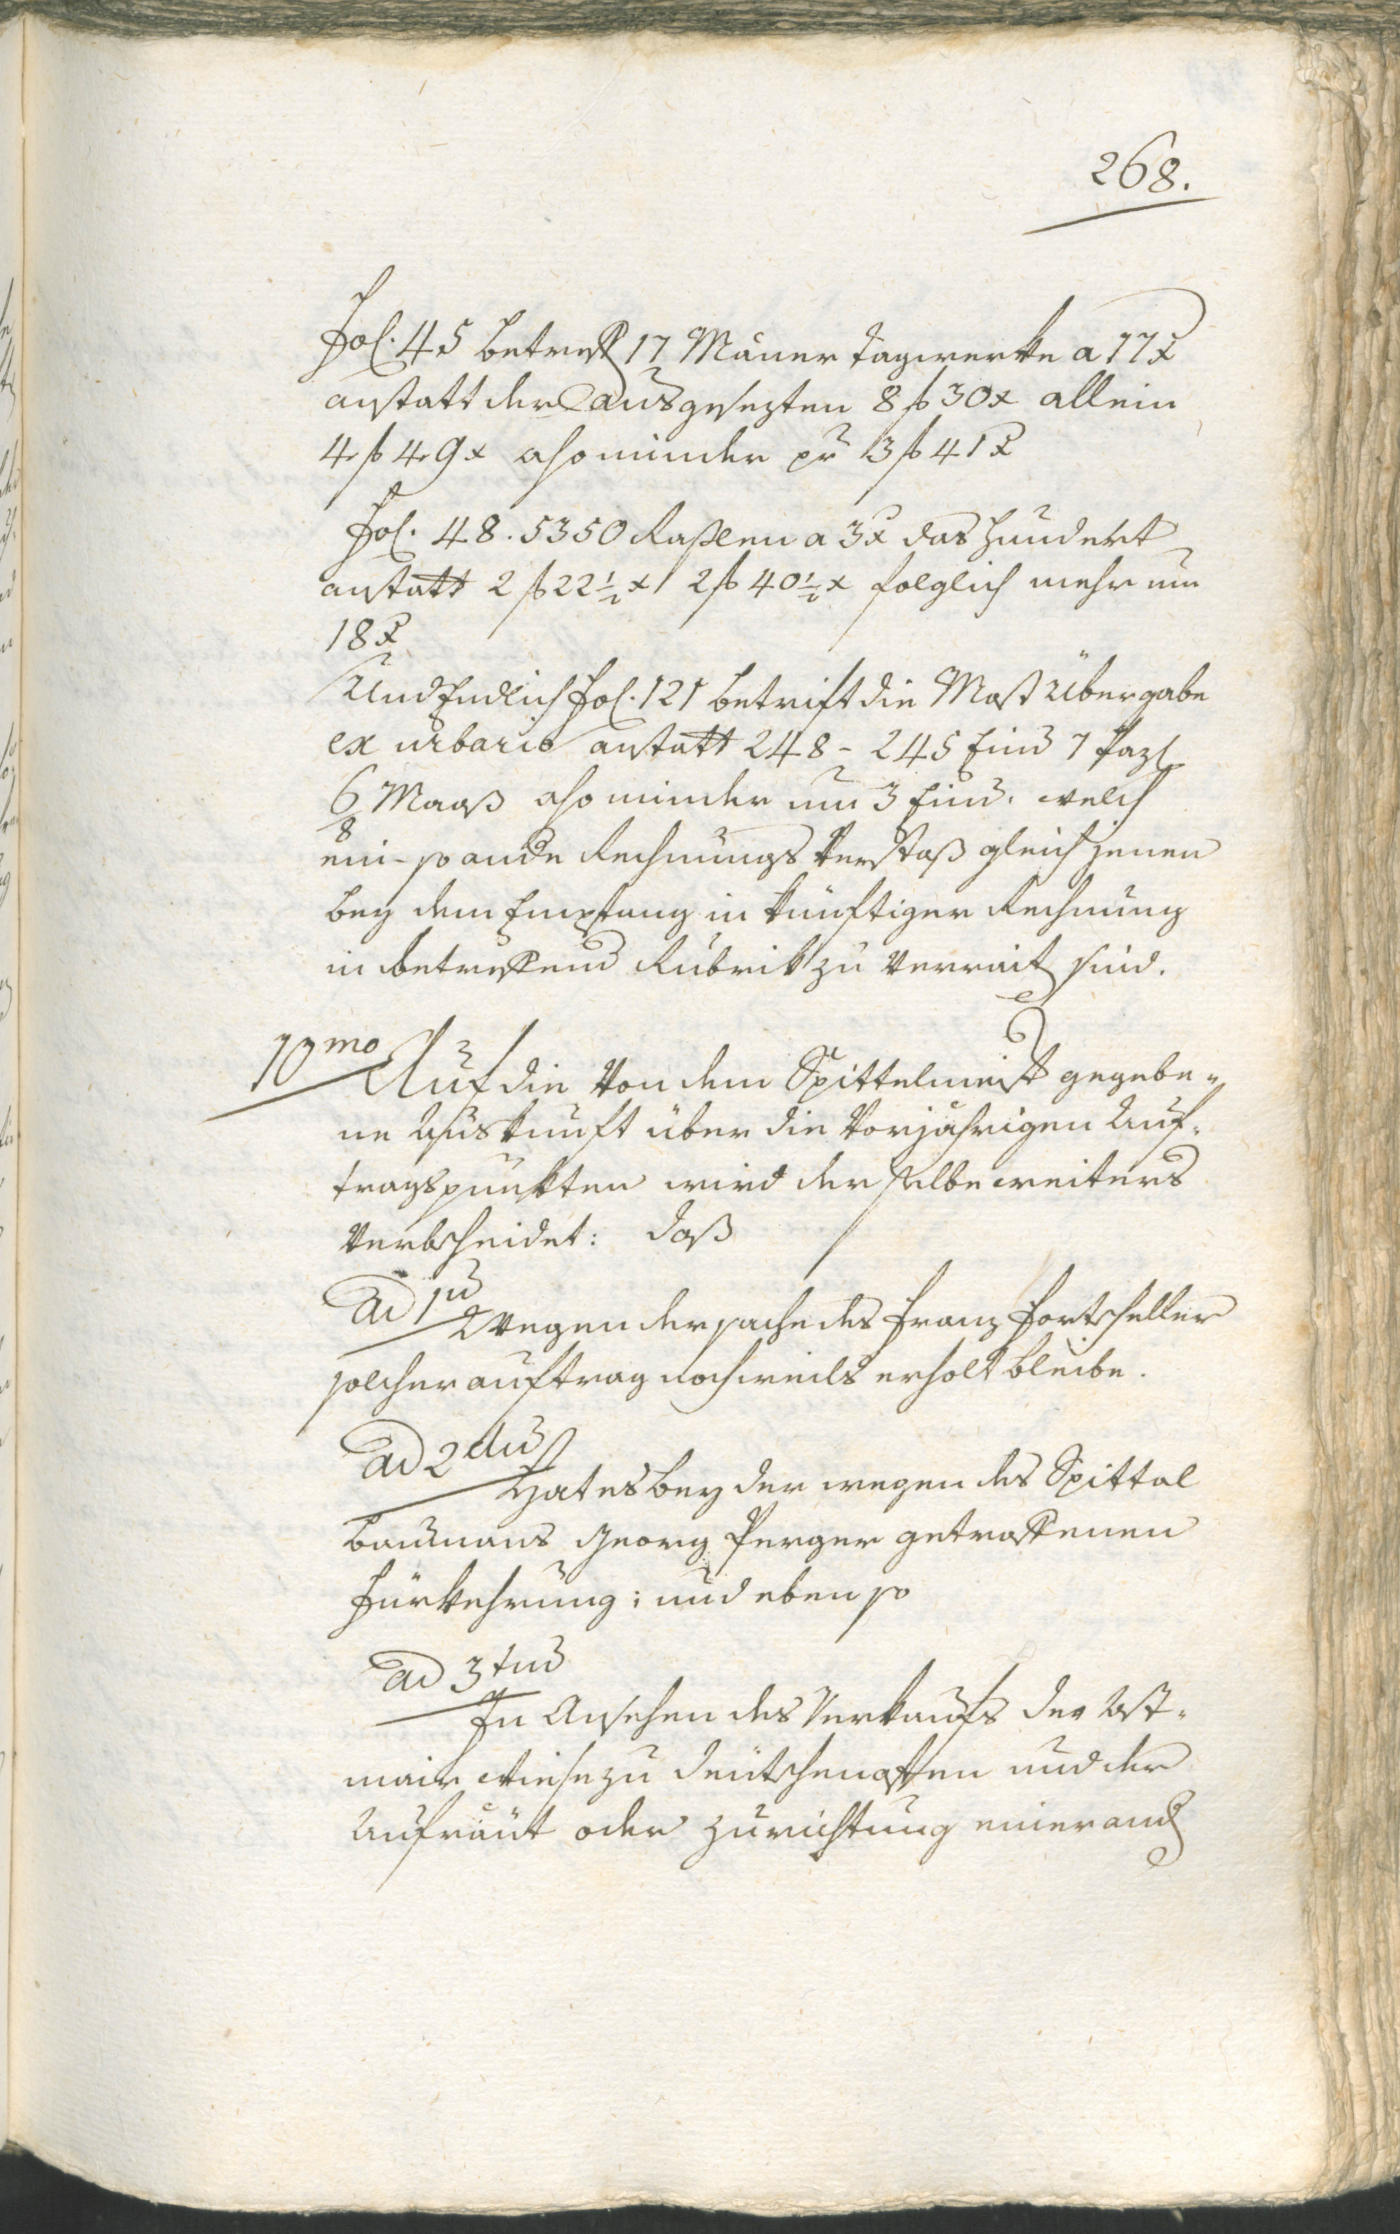 268.
Fol. 45 betreff 17 Mauer Tagwerke a 17 x
anstatt der ausgesezten 8 f 30 x allein
4 f 49 x also minder pr 3 f 41 x
Fol. 48. 5350 Raßlen a 3 x das hundert
anstatt 2 f 22 ½ x 2 f 40 ½ x folglich mehr um
18 x
Und Endlich Fol. 121 betrift die Most Übergabe
ex urbario anstatt 248 - 245 Eim 7 Pazl
6/8 Maaß also minder um 3 Eim. welch
ein- so andr Rechnungs Verstoß gleich jenen
bey dem Empfang in künftiger Rechnung
in betreffend Rubrik zu verrait sind.
10mo Auf die von dem Spittelmeist gegebe-
ne Auskunft über die vorjährigen Auf-
tragspunkten wird derselbe weiters
verbscheidet: daß
ad 1m Wegen der sache des Franz Fortscheller
solcher auftrag nochweils erholt bleibe.
ad 2dum Hat es bey der wegen des Spittal
baumans Georg Perger getroffenen
Fürkehrung: und eben so
ad 3tium
In Ansehen des Verkaufs der Ast-
mair Wiese zu deutschenofen und der
Aufraut oder zurichtung einer and